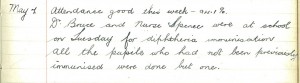 May 7 Attendance good this week - 94.1%.
Dr Bryce and Nurse Spencer were at school
on Tuesday for diphtheria immunisation
All the pupils who had not been previously
immunised were done but one.